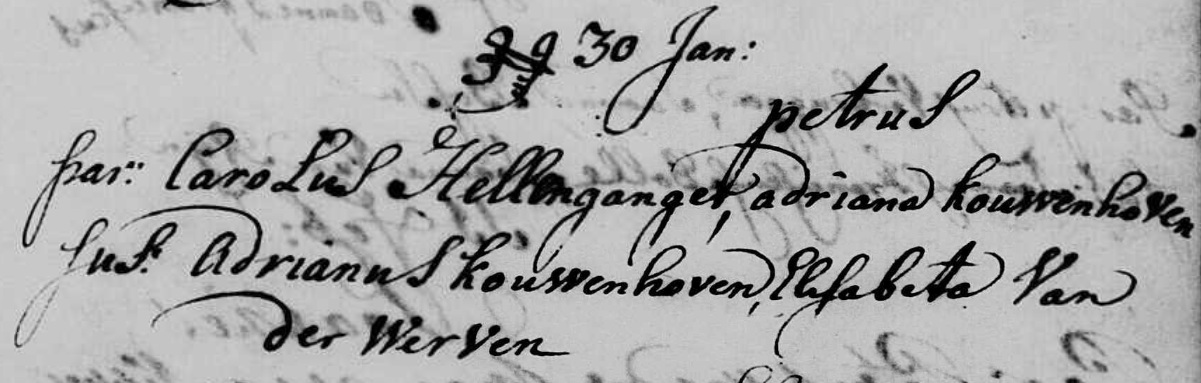 30 Jan:
petrus
par: Carolus Hellenganger, adriana kouwenhoven
sus: Adrianus kouwenhoven, Elisabeta Van
der Werven